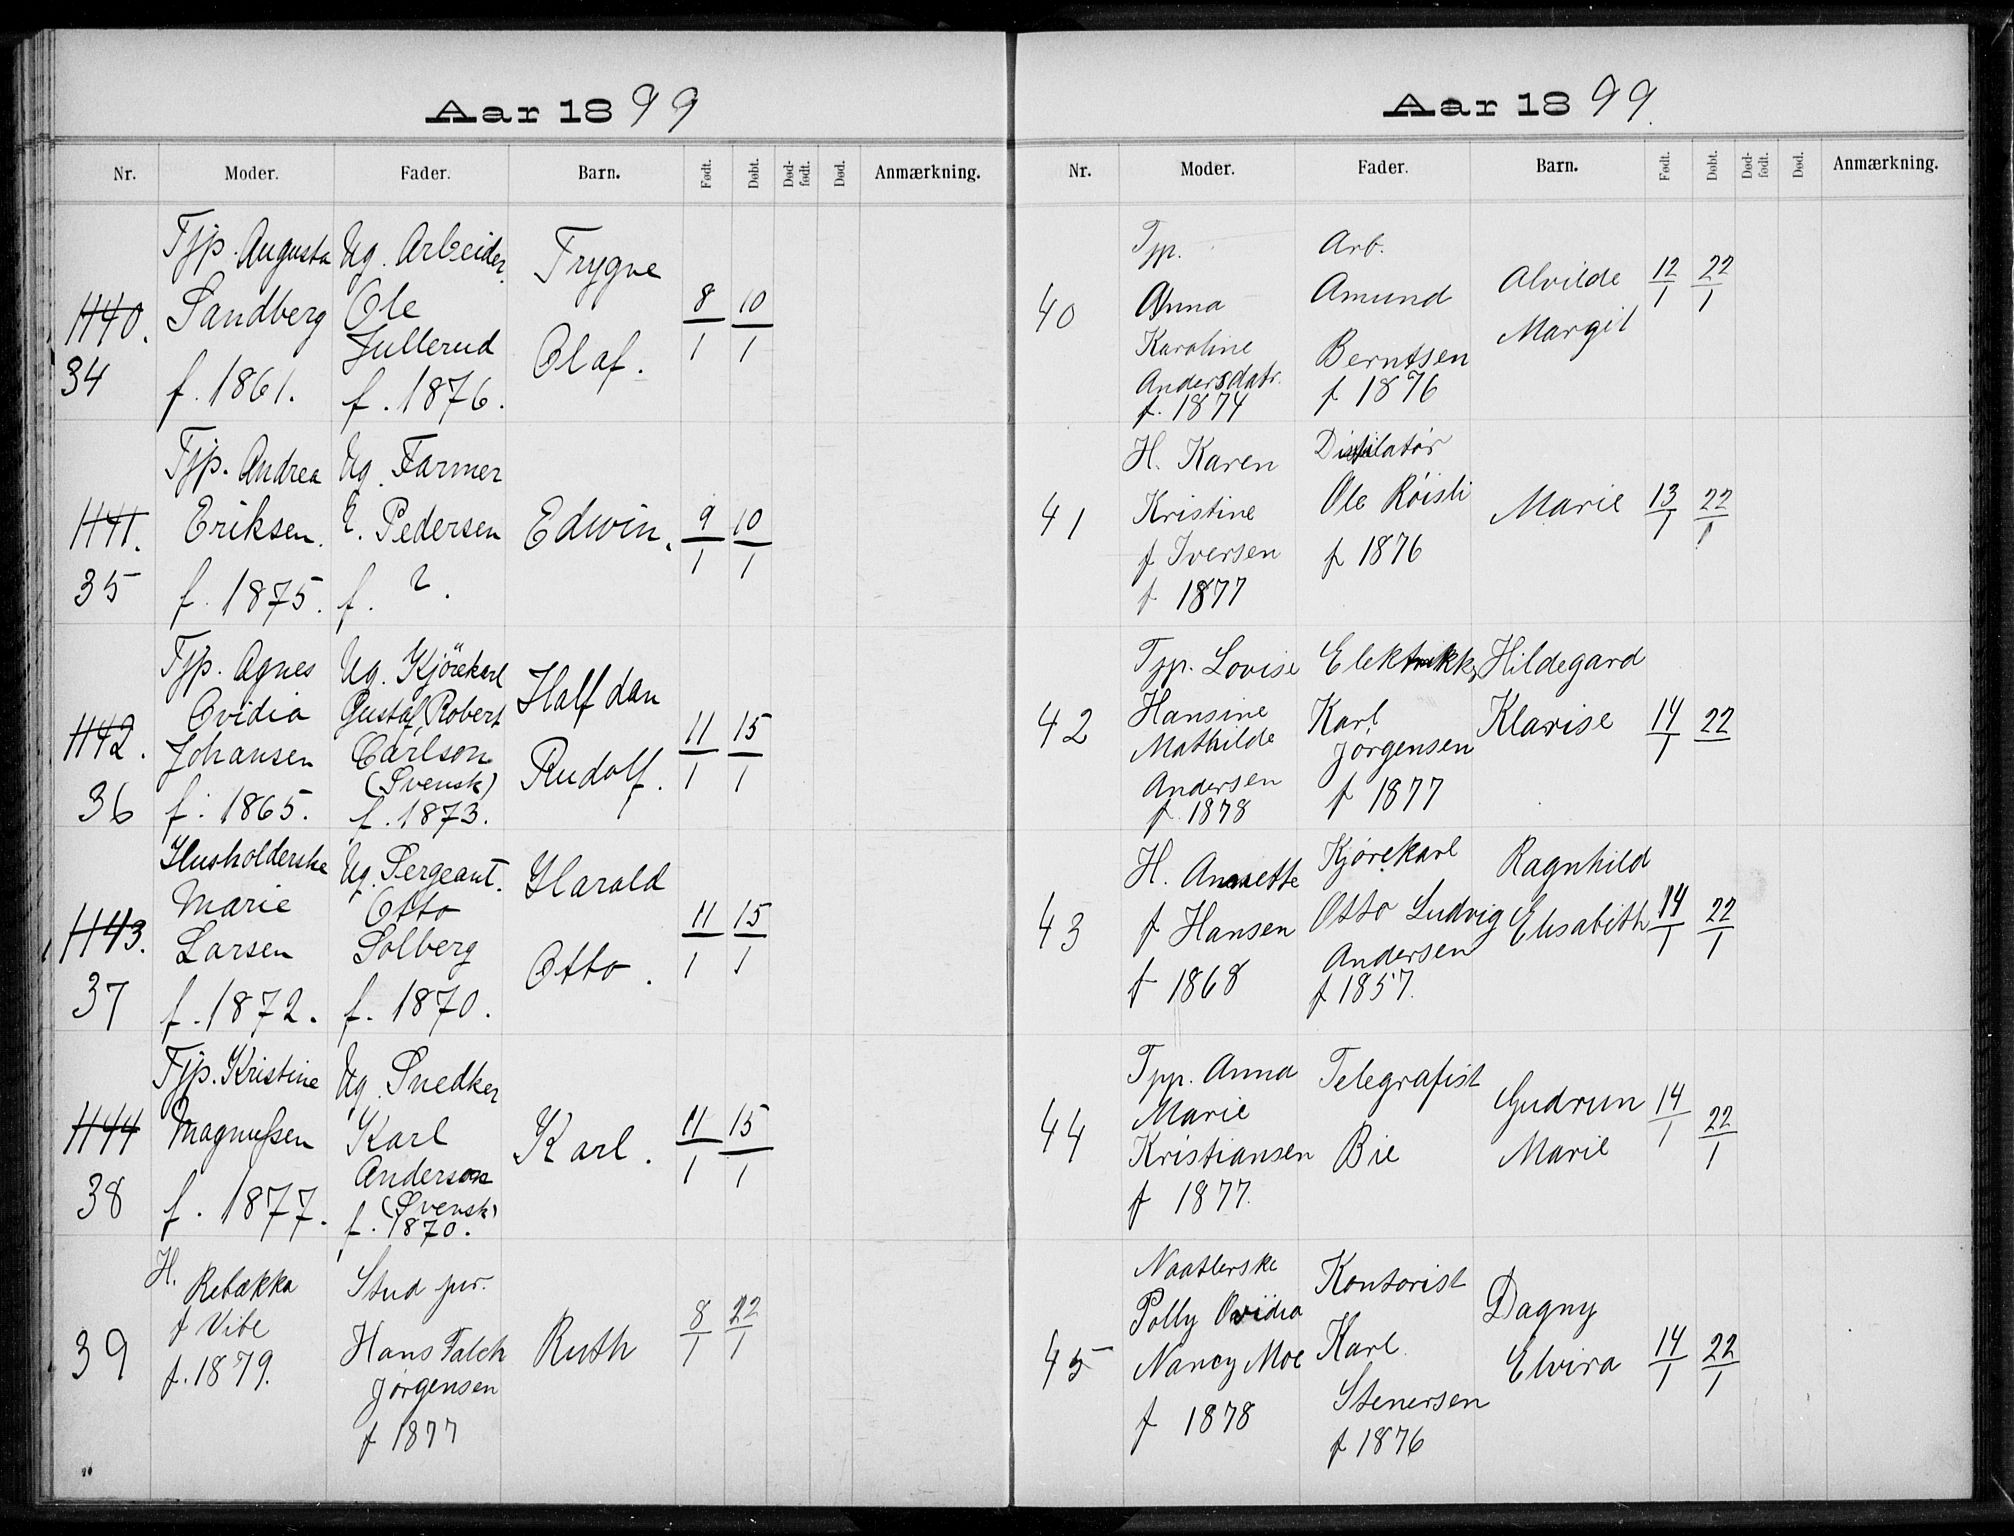 Aar 1899
Nr. Moder. Fader. Barn. Født. Døbt. Død-født. Død. Anmærkning.
1140.
34
Tjp. Augusta
Sandberg
f. 1861.
Ug. Arbeider
Ole
Jullerud
f. 1876.
Trygve
Olaf.
8/1 10/1
1141.
35
Tjp. Andrea
Eriksen.
f. 1875.
Ug. Farmer
E. Pedersen
f. ?.
Edwin.
9/1 10/1
1142.
36
Tjp. Agnes
Ovidia
Johansen
f. 1865.
Ug. Kjörekarl
Gustaf Robert
Carlson
(Svensk)
f. 1873.
Halfdan
Rudolf.
11/1 15/1
1143.
37
Husholderske
Marie
Larsen
f. 1872.
Ug. Sergeant.
Otto
Solberg
f. 1870.
Harald
Otto.
11/1 15/1
1144
38
Tjp. Kristine
Magnussen
f. 1877.
Ug. Snedker
Karl
Anderson
(Svensk)
f. 1870.
Karl.
11/1 15/1
39
H.
Rebækka
f Vibe
f. 1879.
Stud jur.
Hans Falch
Jørgensen
f 1877
Ruth
8/1 22/1
Aar 1899.
Nr. Moder. Fader. Barn. Født. Døbt. Død-født. Død. Anmærkning.
40
Tjp.
Anna
Karoline
Andersdatr.
f. 1874
Arb.
Amund
Berntsen
f 1876
Alvilde
Margit
12/1 22/1
41
H. Karen
Kristine
f Iversen
f 1877
Distilatør
Ole Røisli
f 1876
Marie
13/1 22/1
42
Tjp. Lovise
Hansine
Mathilde
Andersen
f. 1878
Elektrikker
Karl
Jörgensen
f 1877
Hildegard
Klarise
14/1 22
43
H. Annette
f Hansen
f 1868
Kjørekarl
Otto Ludvig
Andersen
f 1857.
Ragnhild
Elisabeth
14/1 22/1
44
Tjp. Anna
Marie
Kristiansen
f 1877.
Telegrafist
Bie
Gudrun
Marie
14/1 22/1
45
Naatlerske
Polly Ovidia
Nancy Moe
f 1878
Kontorist
Karl
Stenersen
f 1876
Dagny
Elvira
14/1 22/1